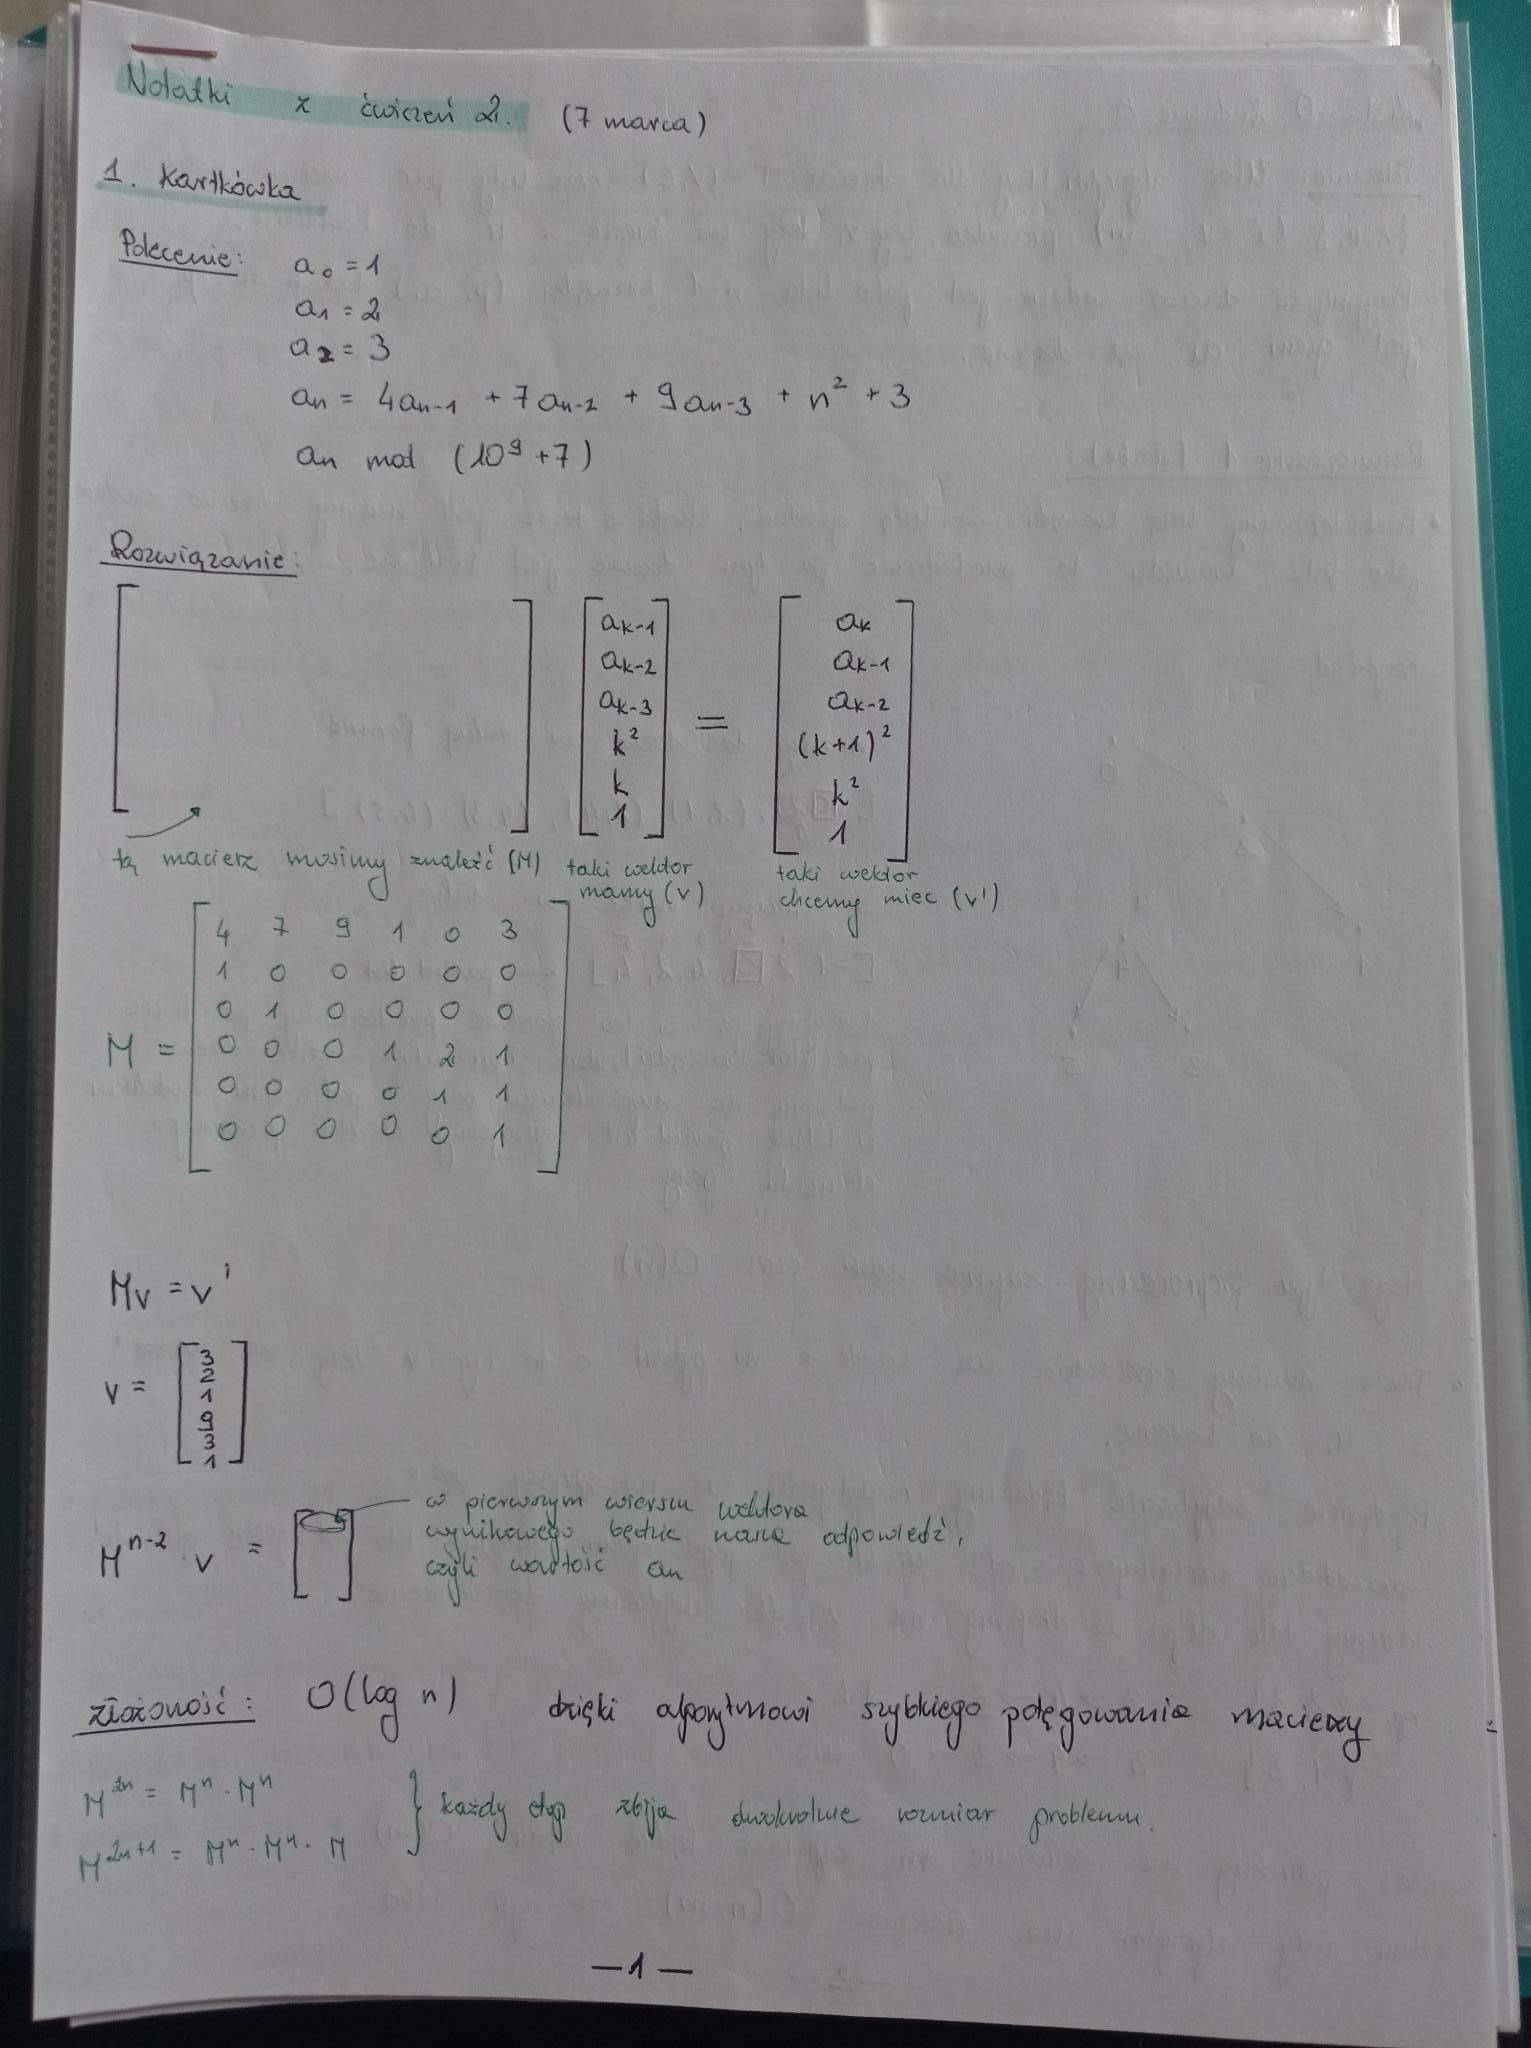 Notatki z ćwiczeń 2. (7 marca)
1. Kartkówka
Polecenie: a₀ = 1
a₁ = 2
a₂ = 3
aₙ = 4aₙ₋₁ + 7aₙ₋₂ + 9aₙ₋₃ + n² + 3
aₙ mod (10⁹ + 7)
Rozwiązanie:
[ ] [aₖ₋₁ aₖ₋₂ aₖ₋₃ k² k 1] = [aₖ aₖ₋₁ aₖ₋₂ (k+1)² k² 1]
tą macierz musimy znaleźć (M)
taki wektor
mamy (v)
taki wektor
chcemy miec (v')
M =
4 7 9 1 0 3
1 0 0 0 0 0
0 1 0 0 0 0
0 0 0 1 2 1
0 0 0 0 1 1
0 0 0 0 0 1
Mv = v'
v =
3
2
1
9
3
1
Mⁿ⁻² · v = [ ]
w pierwszym wierszu wektora
wynikowego będzie nasza odpowiedź,
czyli wartość aₙ
złożoność: O(log n) dzięki algorytmowi szybkiego potęgowania macierzy
M²ⁿ = Mⁿ · Mⁿ
M²ⁿ⁺¹ = Mⁿ · Mⁿ · M
} każdy etap zbija dwukrotnie rozmiar problemu.
— 1 —